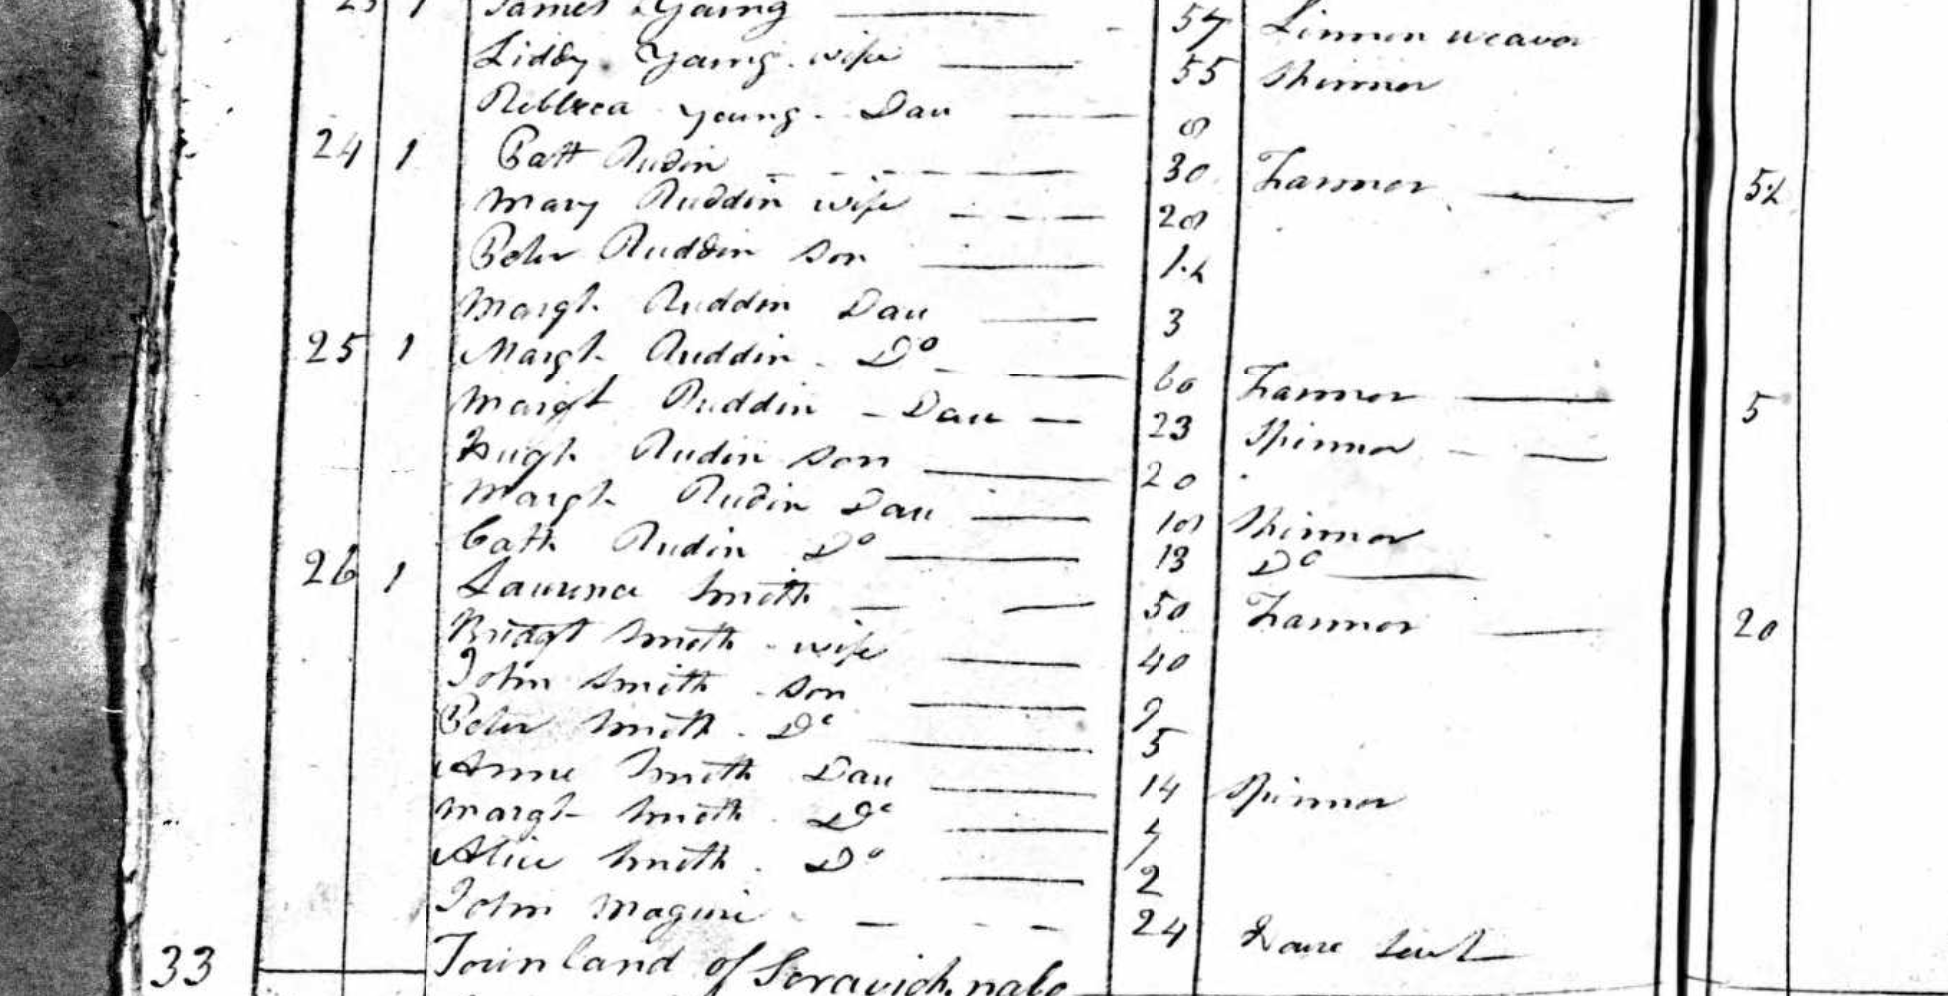 23 1 James Young 57 Linnen weavor
Liddy Young wife 55 Spinnor
Rebbeca Young Dau 8
24 1 Patt Rudin 30 Farmor 5½
Mary Ruddin wife 28
Peter Ruddin Son 1½
Margt Ruddin Dau 3
25 1 Margt Ruddin Do 60 Farmor 5
Margt Ruddin Dau 23 Spinnor
Hugh Rudin Son 20
Margt Rudin Dau 18 Spinnor
Cath Rudin Do 13 Do
26 1 Laurence Smith 50 Farmor 20
Bridgt Smith wife 40
John Smith Son 9
Peter Smith Do 5
Anne Smith Dau 14 Spinnor
Margt Smith Do 7
Alice Smith Do 2
John Maguire 24
33 Townland of